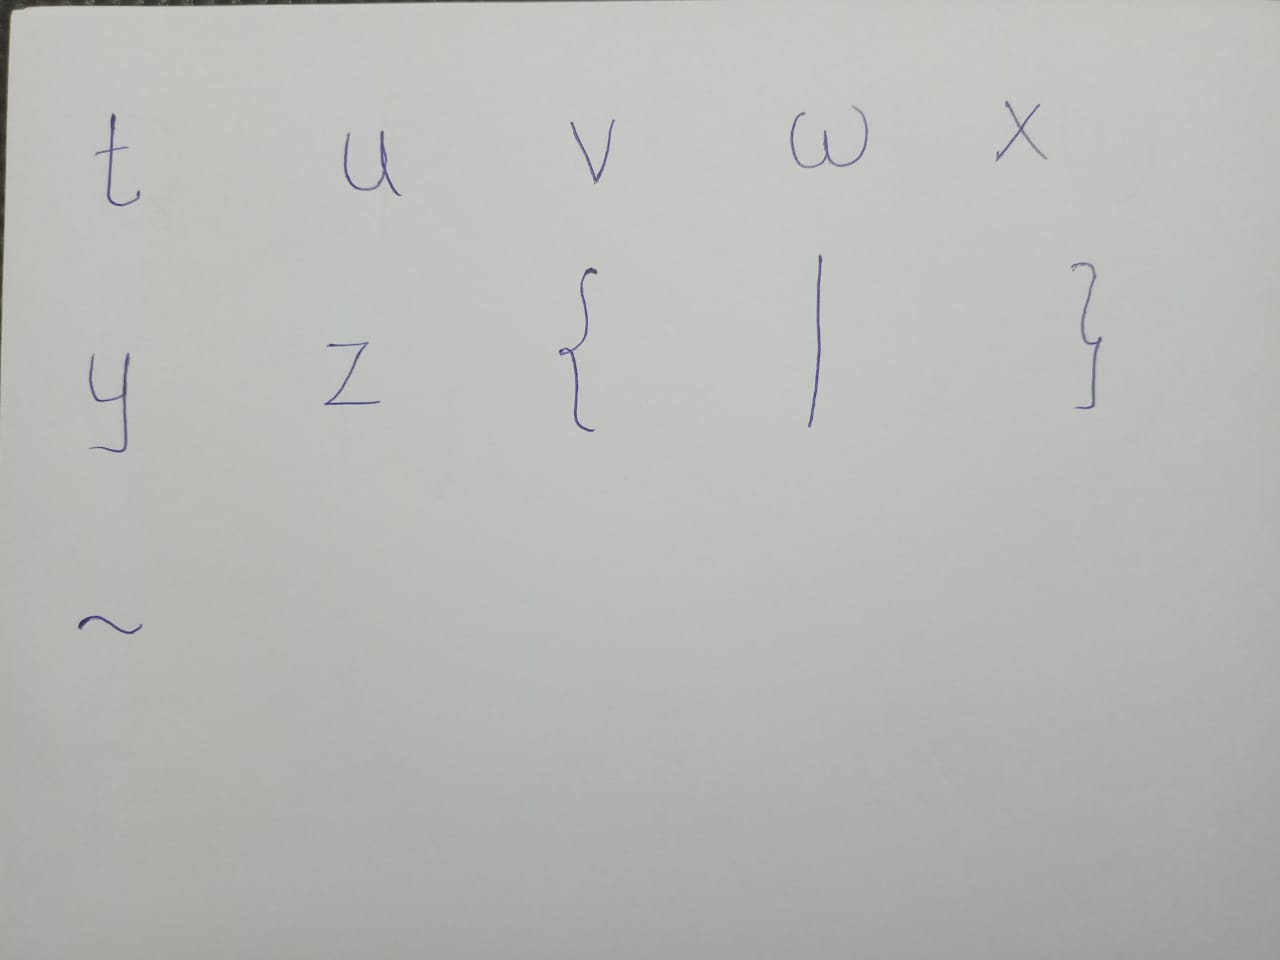 t u v w x
y z { | }
~